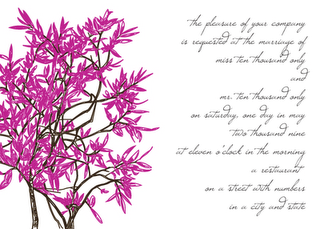 the pleasure of your company
is requested at the marriage of
miss ten thousand only
and
mr. ten thousand only
on saturday, one day in may
two thousand nine
at eleven o'clock in the morning
a restaurant
on a street with numbers
in a city and state